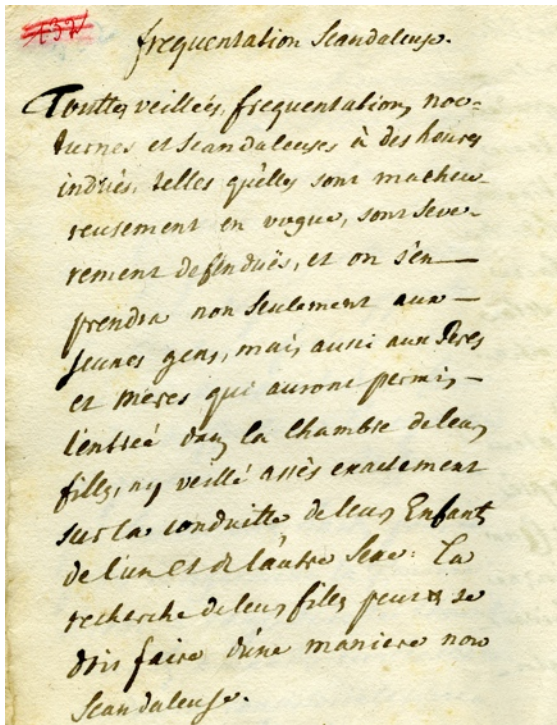 132
frequentation Scandaleuse.
Toutte veillées, frequentation, noc-
turnes et scandaleuses à des heures
induës, telles qu'elles sont malheu-
reusement en vogue, sont seve-
rement defenduës, et on s'en
prendra non seulement aux
jeunes gens, mais aussi aux Peres
et Meres qui auront permis
l'entreé dans la Chambre de leurs
filles, ny veillé assès exactement
sur la conduitte de leurs Enfants
de l'un et de l'autre Sexe. La
recherche de leurs filles peut se
doit faire d'une maniere non
Scandaleuse.